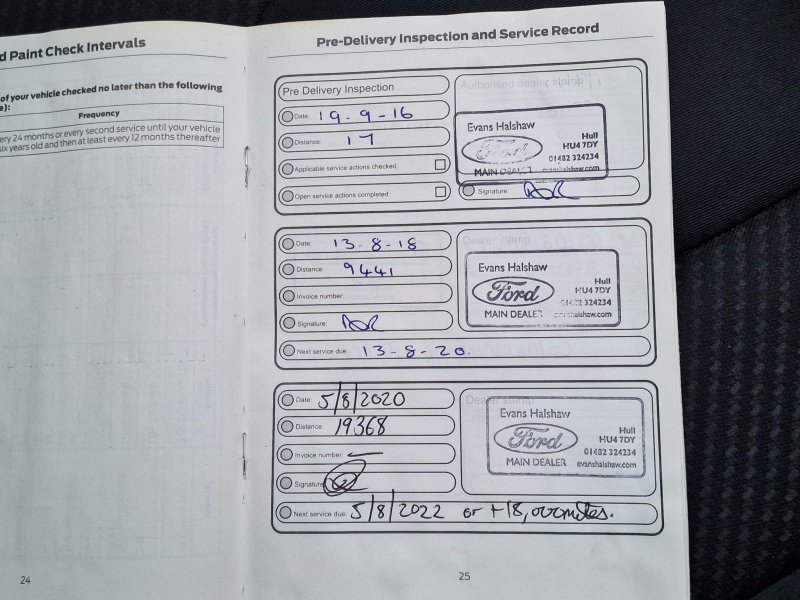 d Paint Check Intervals
of your vehicle checked no later than the following
e):
Frequency
ery 24 months or every second service until your vehicle
six years old and then at least every 12 months thereafter
24
Pre-Delivery Inspection and Service Record
Pre Delivery Inspection
Date: 19-9-16
Distance: 17
Applicable service actions checked:
Open service actions completed:
Authorised dealer stamp
Evans Halshaw
Ford
Hull
HU4 7DY
01482 324234
MAIN DEALER evanshalshaw.com
Signature:
Date: 13-8-18
Distance: 9441
Invoice number:
Signature:
Next service due: 13-8-20.
Dealer stamp
Evans Halshaw
Ford
Hull
HU4 7DY
01482 324234
MAIN DEALER evanshalshaw.com
Date: 5/8/2020
Distance: 19368
Invoice number: —
Signature:
Next service due: 5/8/2022 or +18,000miles.
Dealer stamp
Evans Halshaw
Ford
Hull
HU4 7DY
01482 324234
MAIN DEALER evanshalshaw.com
25